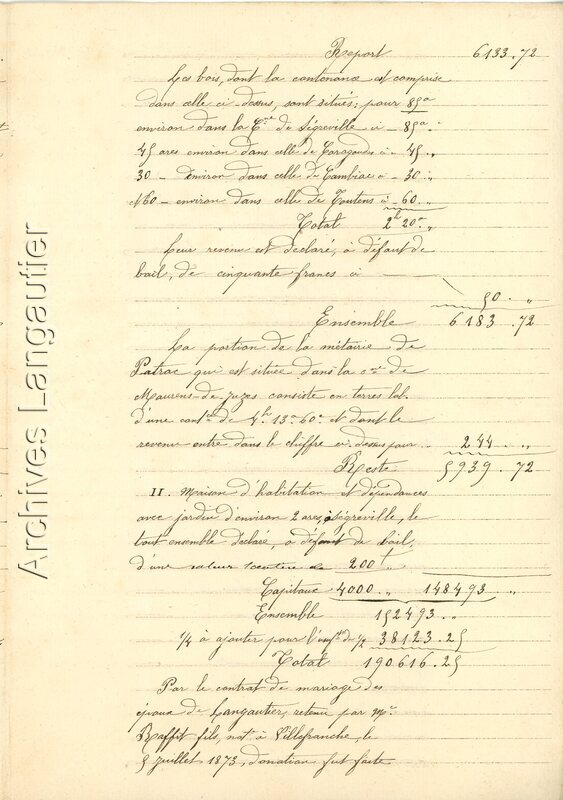 Report 6133.72
Les bois, dont la contenance est comprise
dans celle ci dessus, sont situés: pour 85a
environ dans la Cne de Ségreville ci — 85a "
45 ares environ dans celle de Caragoudes ci - 45 "
30 — environ dans celle de Cambiac ci - 30 "
60 — environ dans celle de Toutens ci - 60 "
Total 2h 20a "
Leur revenu est déclaré, à défaut de
bail, de cinquante francs ci —
50 . "
Ensemble 6183 .72
La portion de la métairie de
Patrac qui est située dans la cne de
Maurens-de-Juzes consiste en terres lab.
d'une contce de 4h 13a 60c et dont le
revenu entre dans le chiffre ci-dessus pour 244 . "
Reste 5939 .72
II. Maison d'habitation et dépendances
avec jardin d'environ 2 ares, à Ségreville, le
tout ensemble déclaré, à défaut de bail,
d'une valeur de 200f "
Capitaux 4000 . " 148493 . "
Ensemble 152493 . "
1/4 à ajouter pour de 1/2 38123.25
Total 190.616.25
Par le contrat de mariage des
époux de Langautier, retenu par Me
Raffit fils, notre à Villefranche, le
5 juillet 1873, donation fut faite
Archives Langautier